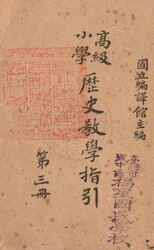 國立編譯館主編
高級
小學
歷史教學指引
第三冊
國民學校